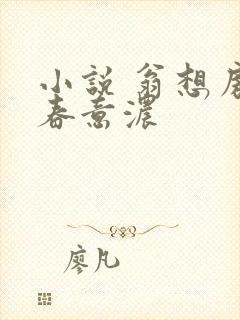 小說 翁想
春意濃
廖凡